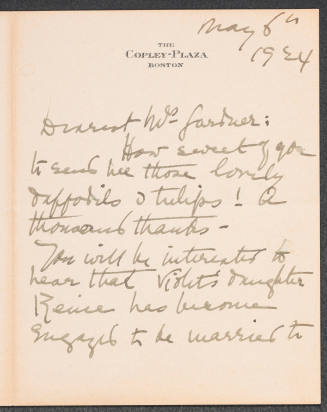 May 6th
1924
THE
COPLEY-PLAZA
BOSTON
Dearest Mrs Gardner:
How sweet of you
to send me those lovely
daffodils & tulips! A
thousand thanks -
You will be interested to
hear that Violet's daughter
Reine has become
engaged to be married to